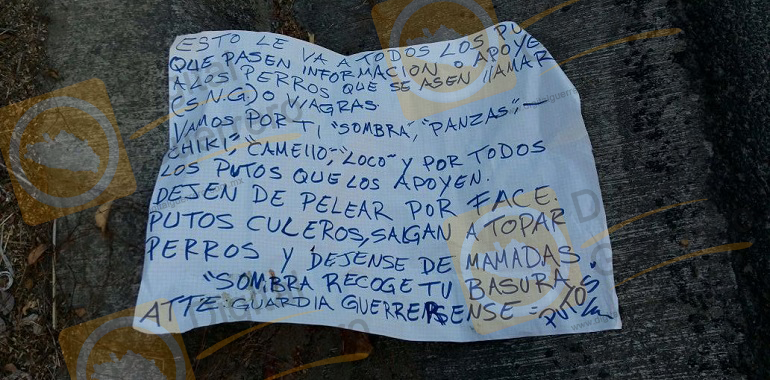 ESTO LE VA A TODOS LOS PU
QUE PASEN INFORMACION O APOYE
A LOS PERROS QUE SE ASEN llAMAR
(S.N.G.) O VIAGRAS
VAMOS POR TI "SOMBRA", "PANZAS",
CHIKI", "CAMELLO", "LOCO" Y POR TODOS
LOS PUTOS QUE LOS APOYEN.
DEJEN DE PELEAR POR FACE.
PUTOS CULEROS, SALGAN A TOPAR
PERROS Y DEJENSE DE MAMADAS.
"SOMBRA RECOGE TU BASURA
ATTE: GUARDIA GUERRERENSE = PUTOS